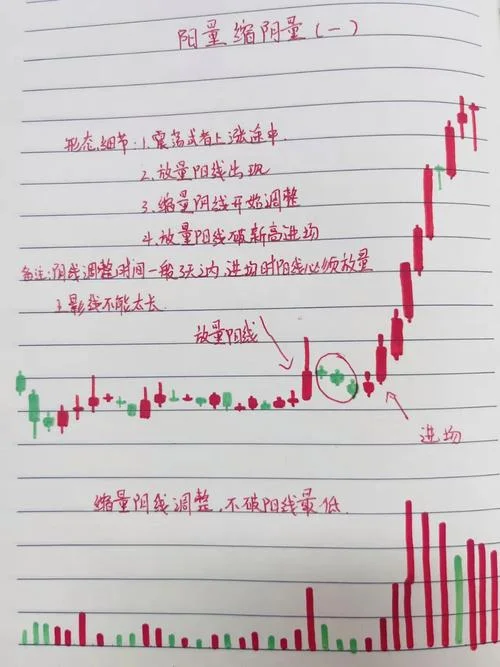 阳量缩阴量(一)
形态细节:1.震荡或者上涨途中
2.放量阳线出现
3.缩量阴线开始调整
4.放量阳线破新高进场
备注:阴线调整时间一般3天之内,进场时阳线必须放量
2.影线不能太长
放量阳线
进场
缩量阴线调整,不破阳线最低.